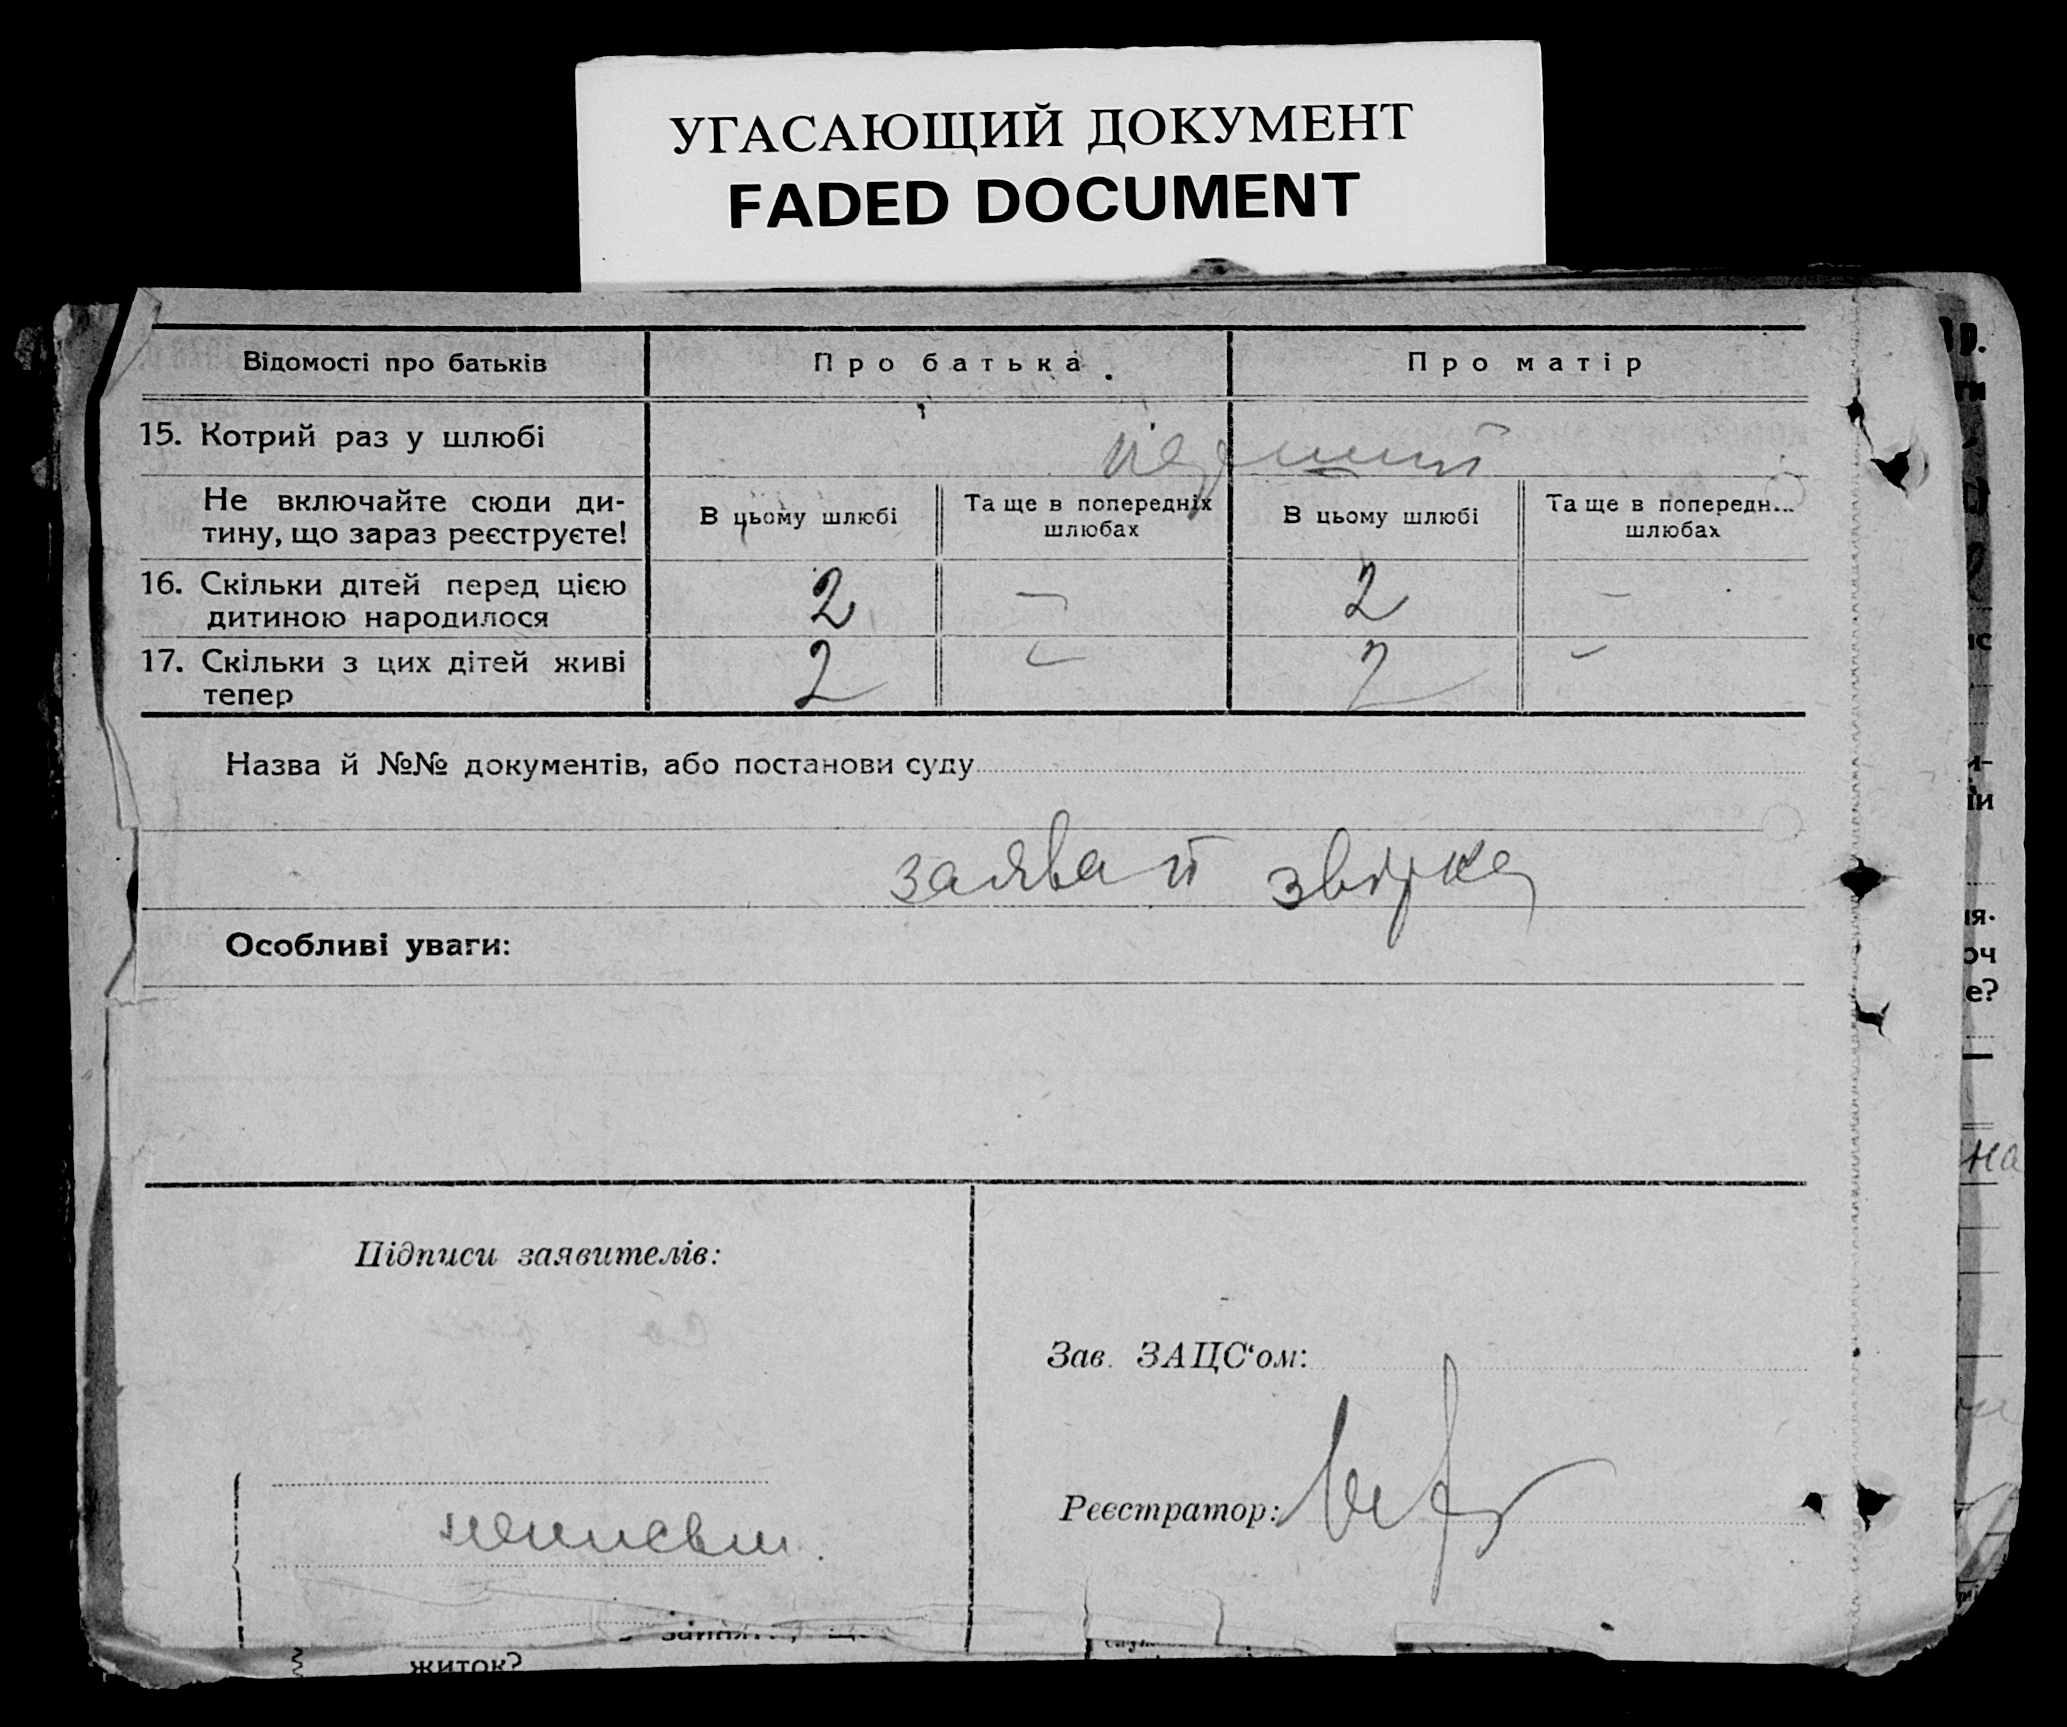 УГАСАЮЩИЙ ДОКУМЕНТ
FADED DOCUMENT
Відомості про батьків
Про батька
Про матір
15. Котрий раз у шлюбі
Не включайте сюди ди-
тину, що зараз реєструєте!
В цьому шлюбі
Та ще в попередніх
шлюбах
В цьому шлюбі
Та ще в попередн...
шлюбах
16. Скільки дітей перед цією
дитиною народилося
2
—
2
—
17. Скільки з цих дітей живі
тепер
2
—
2
—
Назва й №№ документів, або постанови суду
заява й звірка
Особливі уваги:
Підписи заявителів:
Зав. ЗАЦС‘ом:
Реєстратор:
житок?